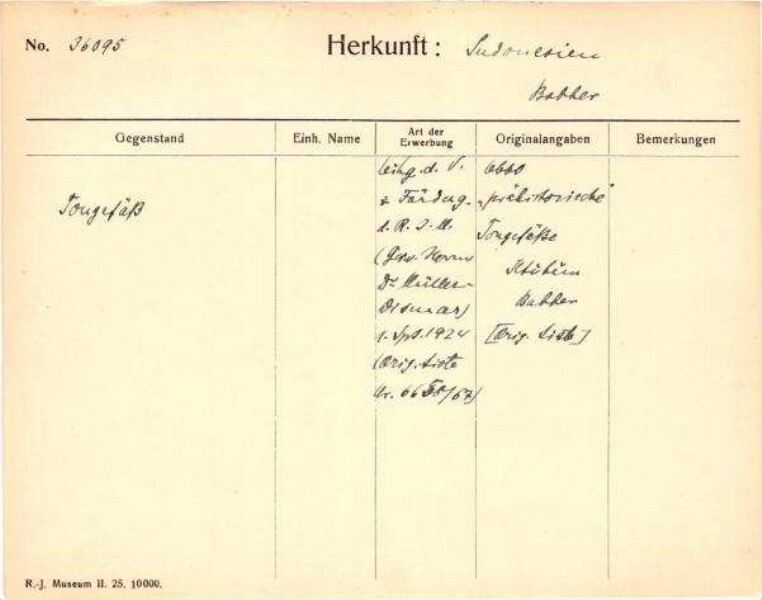 No. 36095
Herkunft: Indonesien
Babber
Gegenstand
Einh. Name
Art der Erwerbung
Originalangaben
Bemerkungen
Tongefäß
d. V.
z. Förderg.
d. R. J. M.
(Frv. Herrn
Dr Müller-
Wismar)
1. Spt. 1924
(Orig. Liste
Nr. 66
"prähistorische"
Tongefäße
Babber
[Orig. Liste]
R.-J. Museum II. 25. 10000.